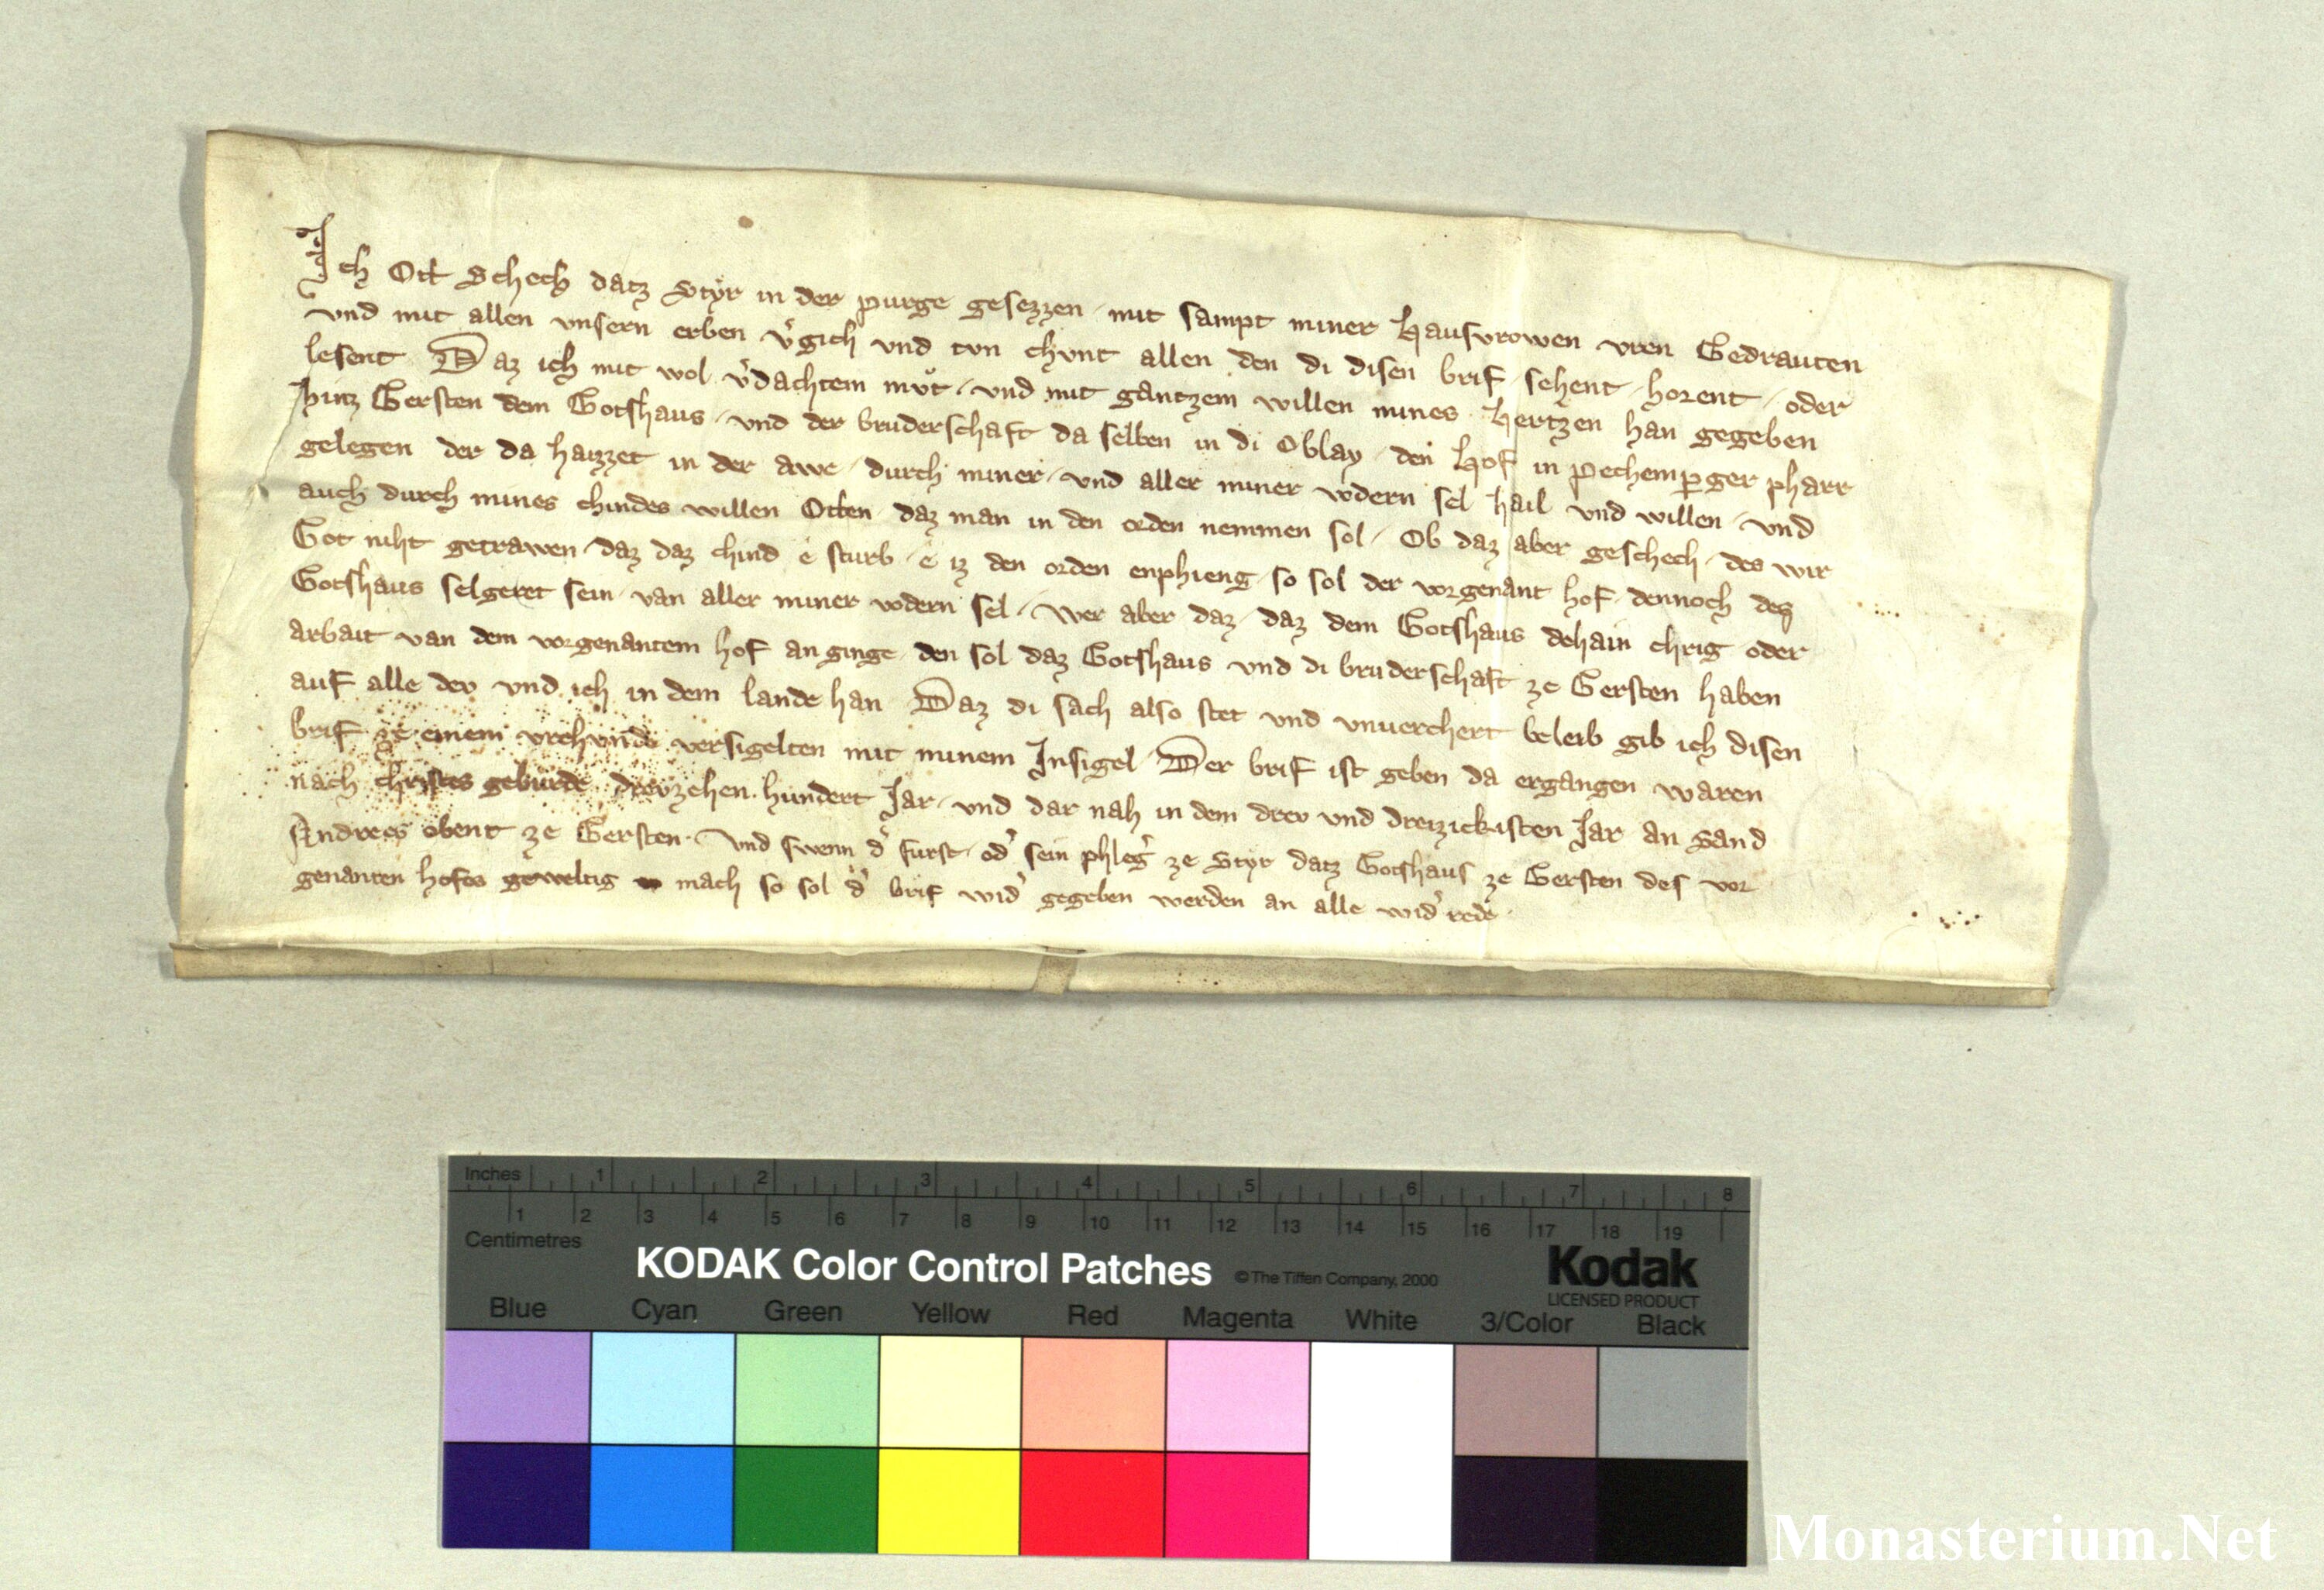 Ich Ott Schech datz Styr in der purge gesezzen mit sampt miner Hausvrowen vren Gedrauten
vnd mit allen vnsern erben v͛gich vnd tvn chvnt allen den di disen brif sehent horent oder
lesent Daz ich mit wol v͛dachtem mvͦt vnd mit gantzem willen mines Hertzen han gegeben
hintz Gersten dem Gotshaus vnd der bruderschaft da selben in di Oblay den Hof in pechemꝑger pharr
gelegen der da haizzet in der awe durch miner vnd aller miner vodern sel hail vnd willen vnd
auch durch mines chindes willen Otten daz man in den orden nemmen sol Ob daz aber geschech des wir
Got niht getrawen daz daz chind e sturb e iz den orden enphieng so sol der vorgenant hof dennoch des
Gotshaus selgeret sein van aller miner vodern sel Wer aber daz daz dem Gotshaus dehain chrig oder
arbait van dem vorgenantem hof an ginge den sol daz Gotshaus vnd di bruderschaft ze Gersten haben
auf alle dev vnd ich in dem lande han Daz di sach also stet vnd vnuerchert beleib gib ich disen
brif ze einem vrchunde versigelten mit minem Insigel Der brif ist geben da ergangen waren
nach christes geburde drevzehen hundert Jar vnd dar nah in dem drev vnd dreizickisten Jar an Sand
Andrees obent ze Gersten Vnd swenn d͛ furst od͛ sein phleg͛ ze Styr datz Gotshaus ze Gersten des vor
genanten hofes geweltig mach so sol d͛ brif wid͛ gegeben werden an alle wid͛ rede
Inches 1 2 3 4 5 6 7 8
1 2 3 4 5 6 7 8 9 10 11 12 13 14 15 16 17 18 19
Centimetres
KODAK Color Control Patches © The Tiffen Company, 2000 Kodak
LICENSED PRODUCT
Blue Cyan Green Yellow Red Magenta White 3/Color Black
Monasterium.Net